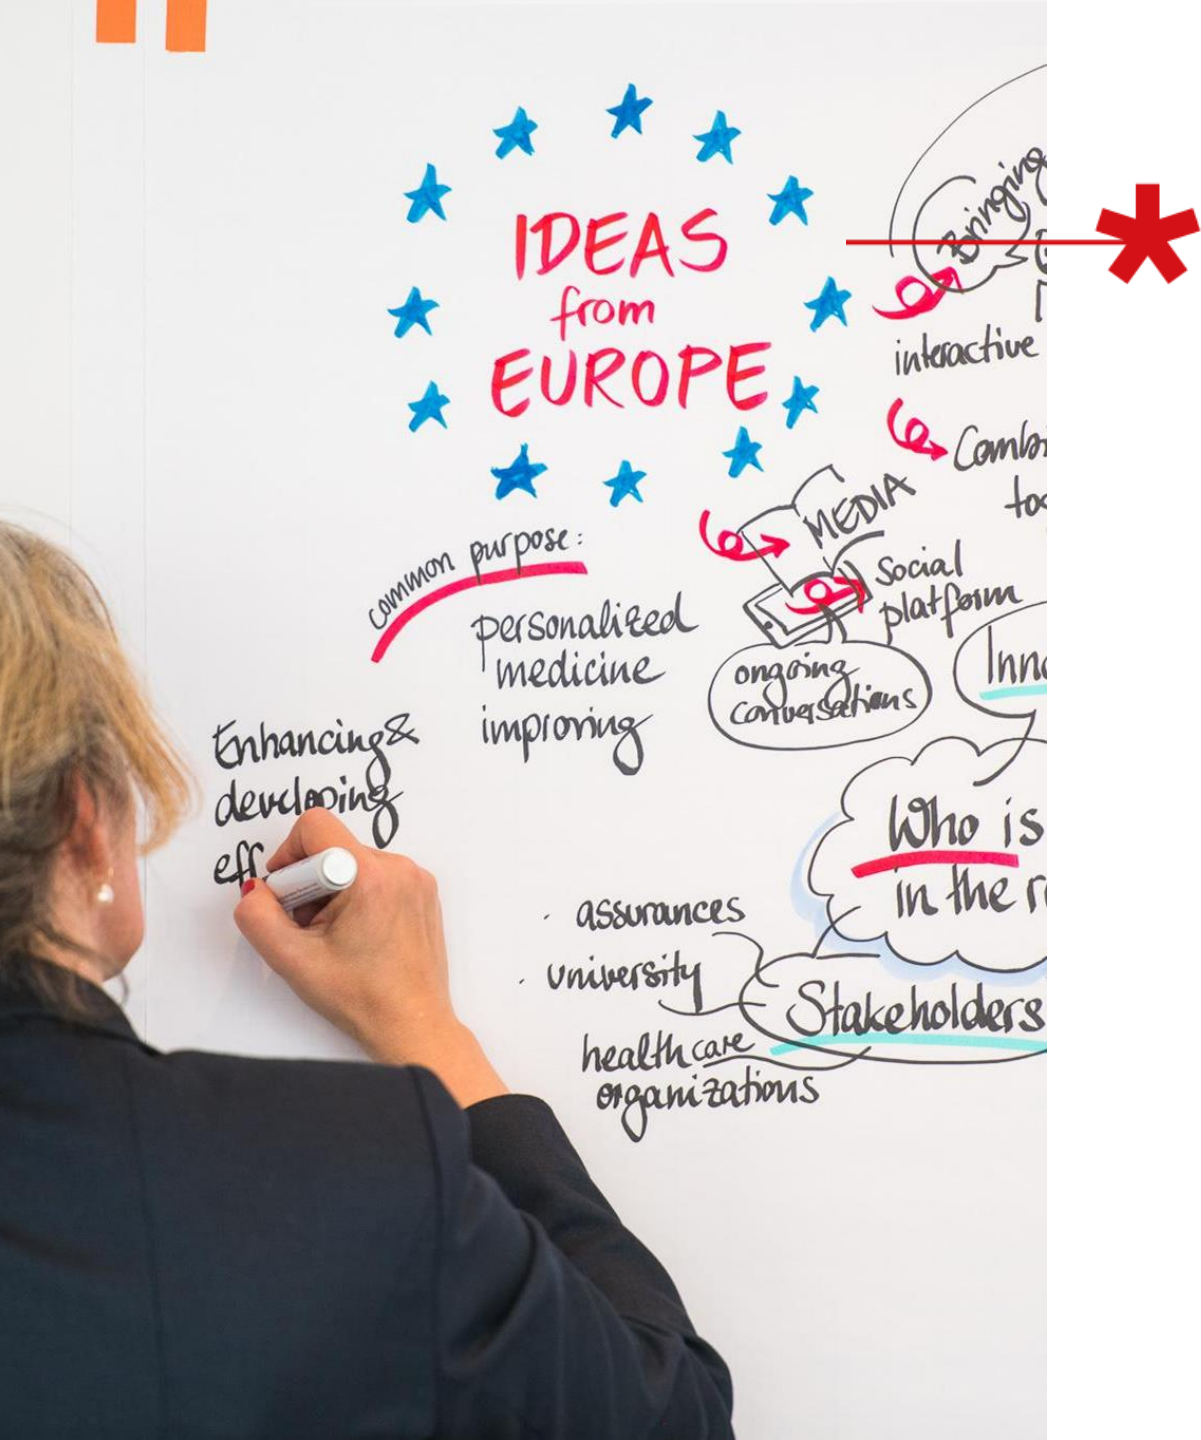 IDEAS
from
EUROPE
Bringing
interactive
MEDIA
Social
platform
ongoing
conversations
common purpose:
personalized
medicine
improving
Enhancing &
developing
eff
Who is
in the
Stakeholders
assurances
university
healthcare
organizations